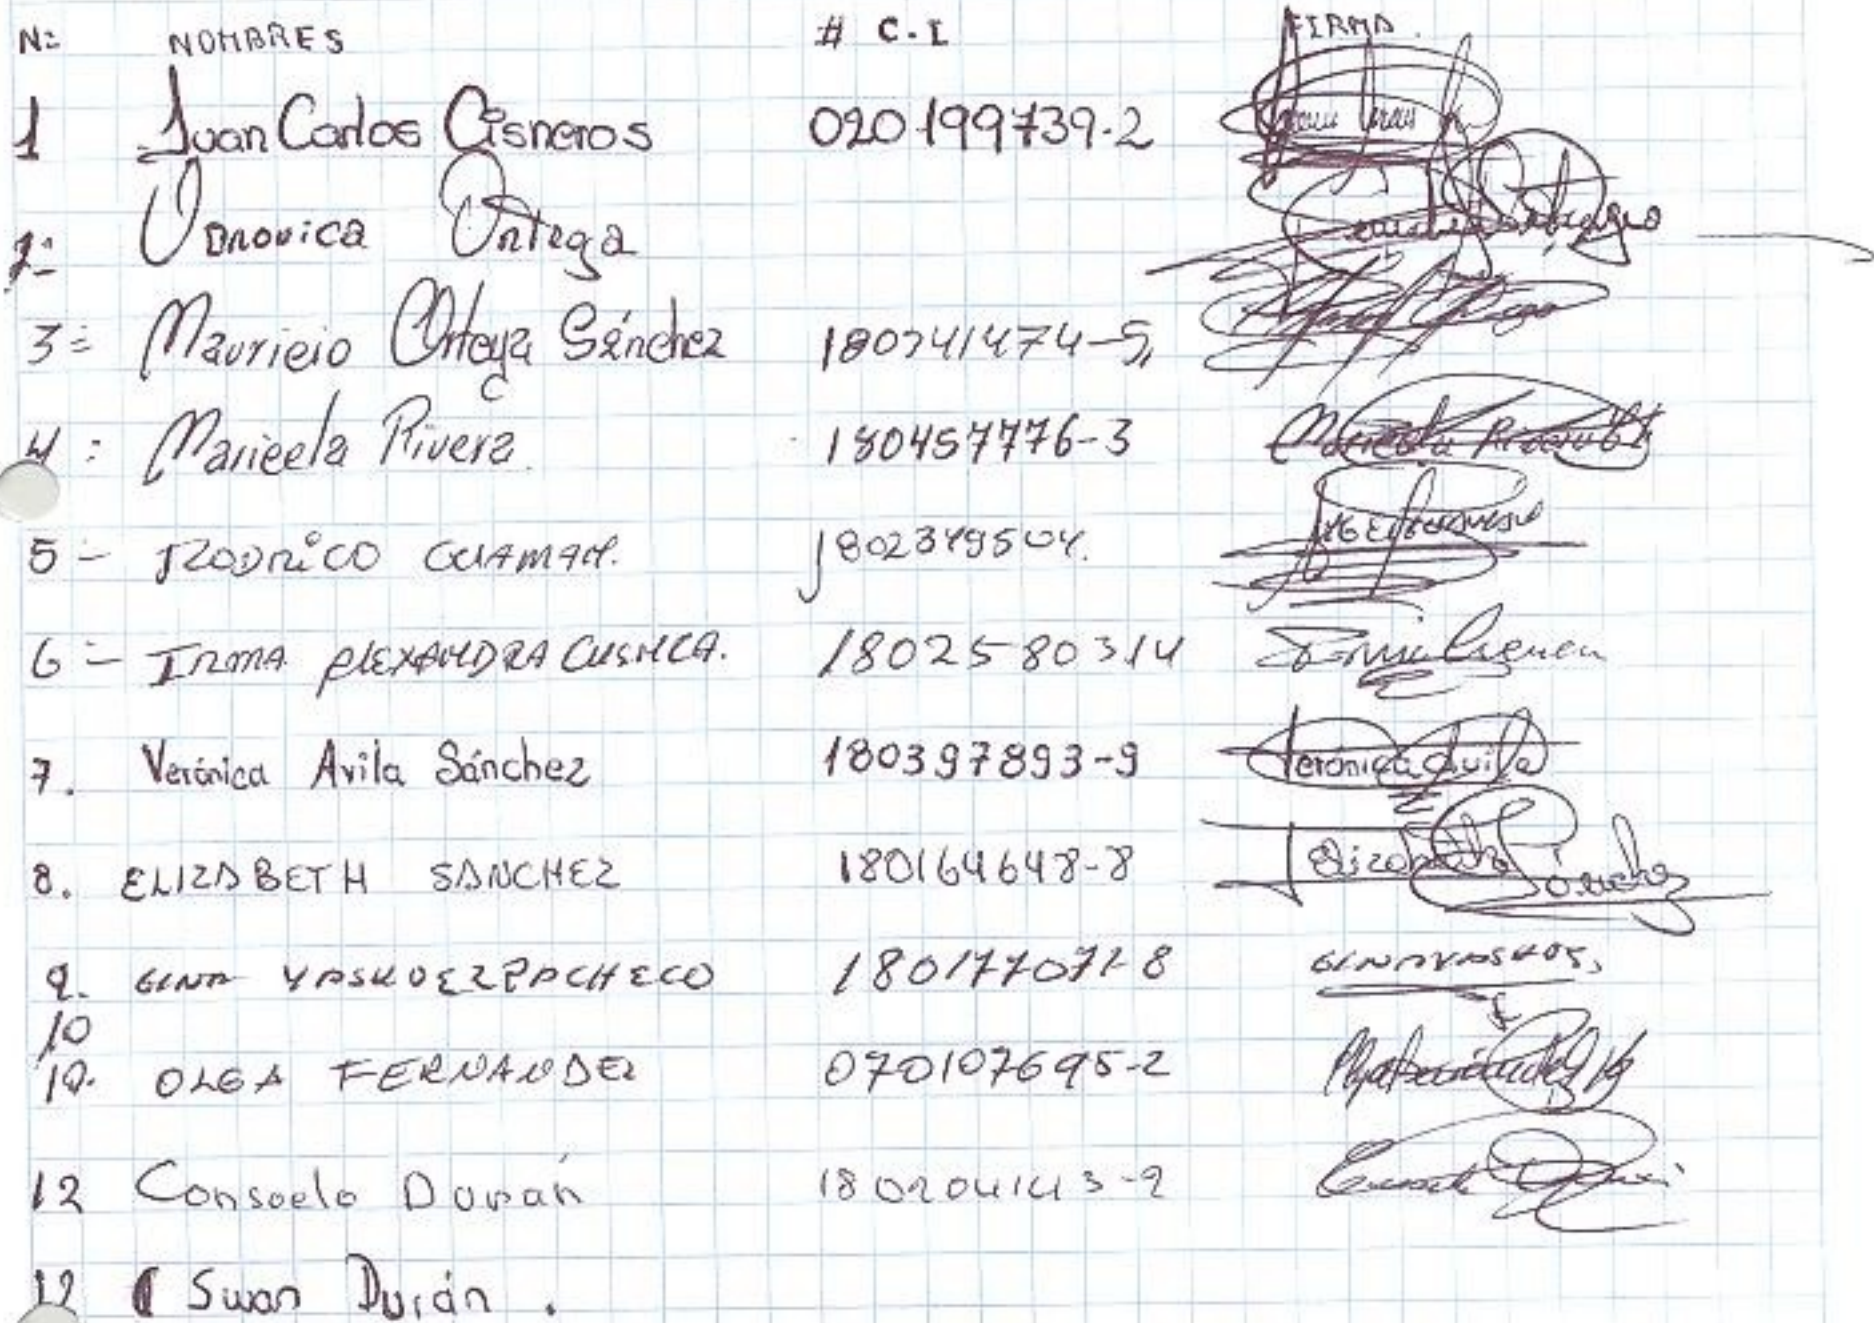 Nº NOMBRES # C.I FIRMA.
1 Juan Carlos Cisneros 020199739-2
2º Veronica Ortega
3= Mauricio Ortega Sánchez 180341474-5
4: Maricela Rivera. 180457776-3
5- RODRIGO GUAMAN. 1802349504.
6- IRMA ALEXANDRA CUSHCA. 1802580314
7. Verónica Avila Sánchez 180397893-9 Verónica Avila
8. ELIZABETH SANCHEZ 180164648-8 Elizabeth Sánchez
9. GINA VASKUEZ PACHECO 180177071-8
10
10. OLGA FERNANDEZ 070107695-2
12 Consuelo Durán 180204143-2
12 Swan Durán.